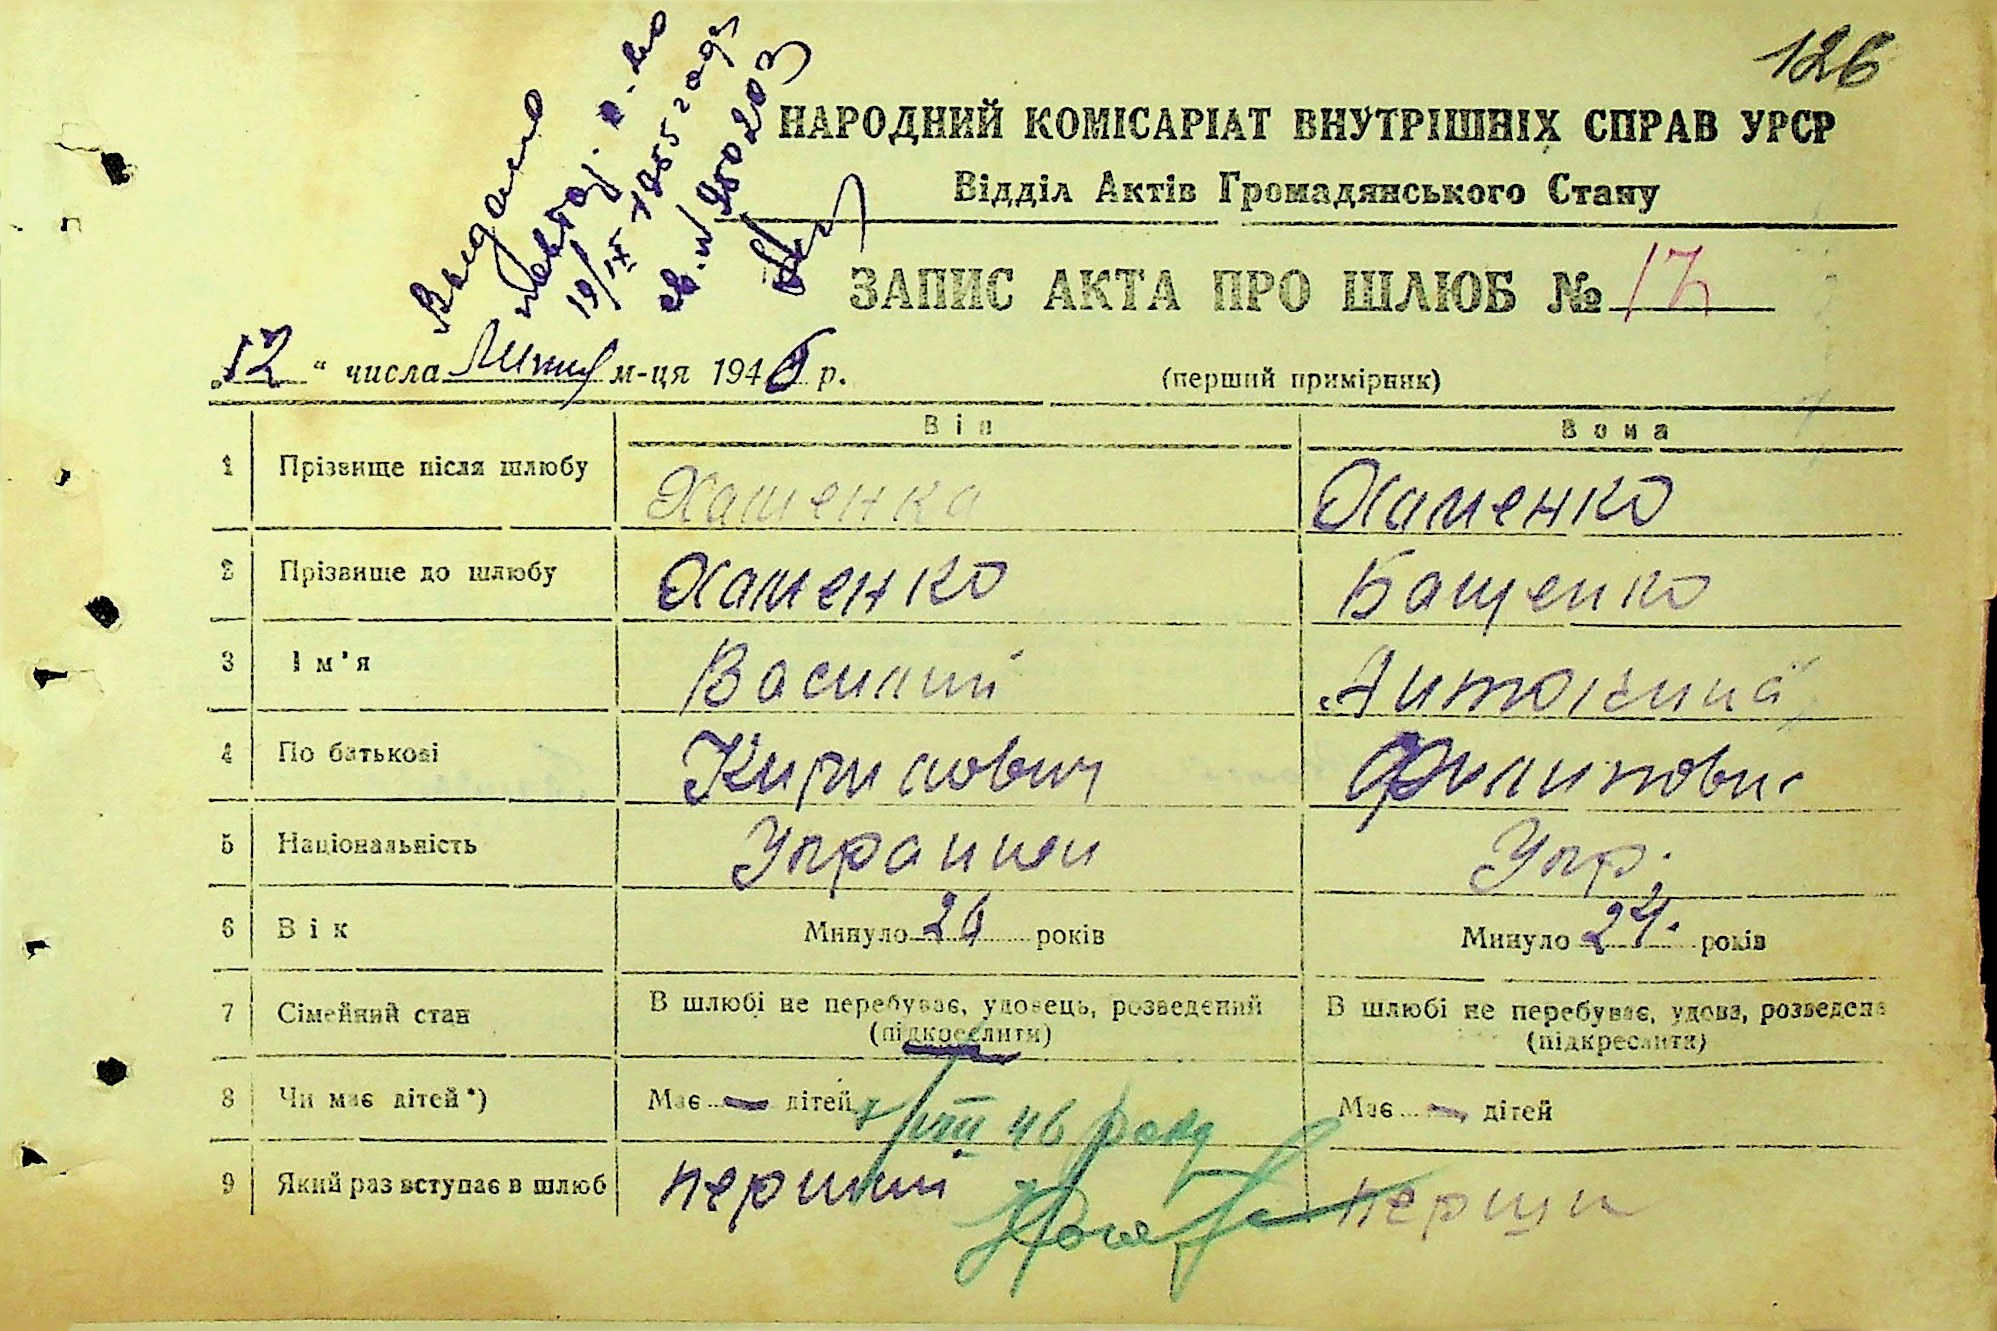 126
Видано
повтор.
19/IX 1955 года
св. № 950203
НАРОДНИЙ КОМІСАРІАТ ВНУТРІШНІХ СПРАВ УРСР
Відділ Актів Громадянського Стану
ЗАПИС АКТА ПРО ШЛЮБ № 17
„12“ числа Лютий м-ця 1946 р. (перший примірник)
Він Вона
1 Прізвище після шлюбу Хаменко Хаменко
2 Прізвище до шлюбу Хаменко Бащенко
3 Ім'я Василий Антонина
4 По батькові Кирилович Филипович
5 Національність Украинец Укр.
6 Вік Минуло 26 років Минуло 24. років
7 Сімейний стан В шлюбі не перебуває, удовець, розведений (підкреслити) В шлюбі не перебуває, удова, розведена (підкреслити)
8 Чи має дітей*) Має — дітей Має — дітей
VIII 46 року
9 Який раз вступає в шлюб перший перши